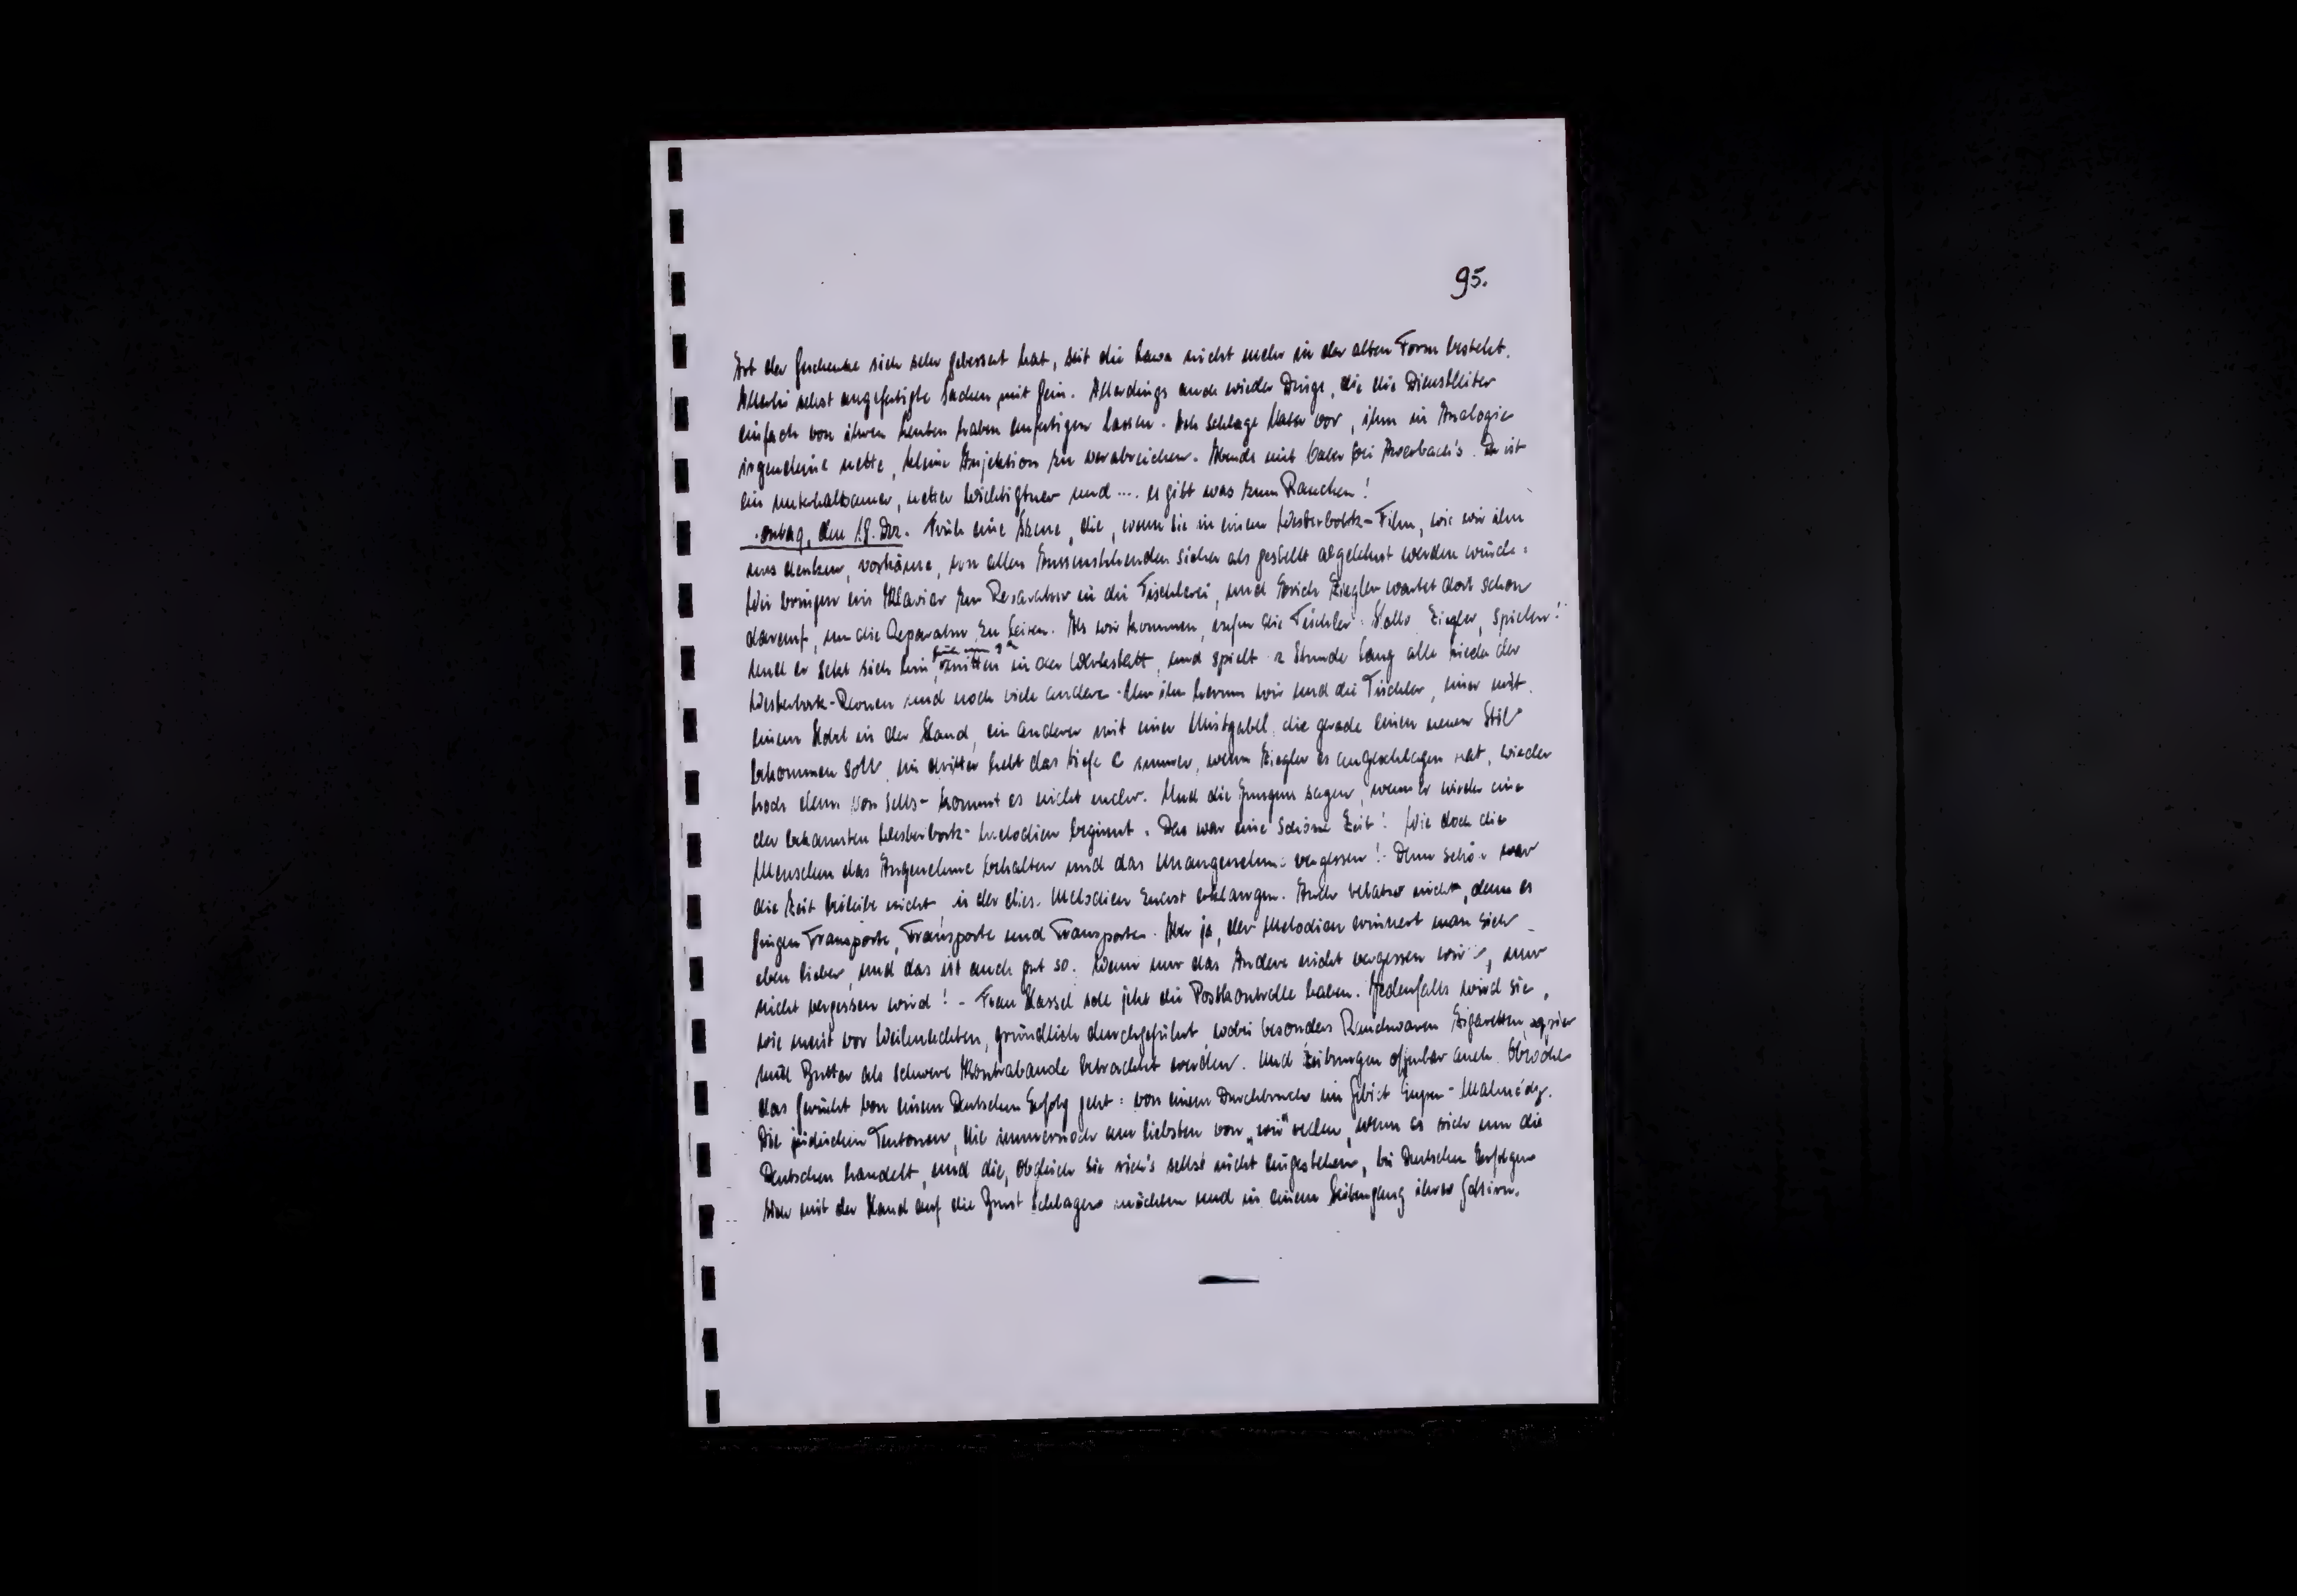 95.
Art der Geschenke sich sehr gebessert hat, seit die Lawa nicht mehr in der alten Form besteht.
Allerlei selbst angefertigte Sachen mit fein. Allerdings auch wieder Dinge, die die Dienstleiter
einfach von ihren Leuten haben anfertigen lassen. Ich schlage vor, ihm in Analogie
irgendeine nette, kleine Injektion zu verabreichen. Abends mit bei Auerbach's. Er ist
ein unterhaltsamer, netter Wichtigtuer und .... es gibt was zum Rauchen!
ontag, den 18. Dez. Früh eine Szene, die, wenn sie in einem Westerbork-Film, wie wir ihn
uns denken, vorkäme, von allen Aussenstehenden sicher als gestellt abgelehnt werden würde:
Wir bringen ein Klavier zur Reparatur in die Tischlerei, und Erich Ziegler wartet dort schon
darauf, um die Reparatur zu leiten. Als wir kommen, rufen die Tischler: Hallo Ziegler, spielen!
Und er setzt sich hin, früh um mitten in der Werkstatt, und spielt 2 Stunde lang alle Lieder der
Westerbork-Revuen und noch viele andere. Um ihn herum wir und die Tischler, einer mit
einem Hobel in der Hand, ein anderer mit einer Mistgabel, die gerade einen neuen Stil
bekommen soll, ein dritter hebt das tiefe C immer, wenn Ziegler es angeschlagen hat, wieder
hoch denn von selbst kommt es nicht mehr. Und die Jungen sagen, wenn er wieder eine
der bekannten Westerbork-Melodien beginnt: Das war eine schöne Zeit! Wie doch die
Menschen das Angenehme behalten und das Unangenehme vergessen! Denn schön war
die Zeit beileibe nicht, in der dies. Melodien zuerst erklangen. Auch relativ nicht, denn es
gingen Transporte, Transporte und Transporte. Aber ja, der Melodien erinnert man sich
eben lieber, und das ist auch gut so. Wenn nur das Andere nicht vergessen wird, nur
nicht vergessen wird! - Frau Hassel soll jetzt die Postkontrolle haben. Jedenfalls wird sie,
wie meist vor Weihnachten, gründlich durchgeführt, wobei besonders Rauchwaren Zigaretten papier
und Butter als schwere Kontrabande betrachtet werden. Und Zeitungen offenbar auch. Obwohl
das Gerücht von einem Deutschen Erfolg geht: von einem Durchbruch im Gebiet Eupen-Malmédy.
Die jüdischen Teutonen, die immernoch am liebsten von „wir" reden, wenn es sich um die
Deutschen handelt, und die, obgleich sie sich's selbst nicht eingestehen, bei Deutschen Erfolgen
sich mit der Hand auf die Brust schlagen möchten und in einem Seitengang ihres Gehirns